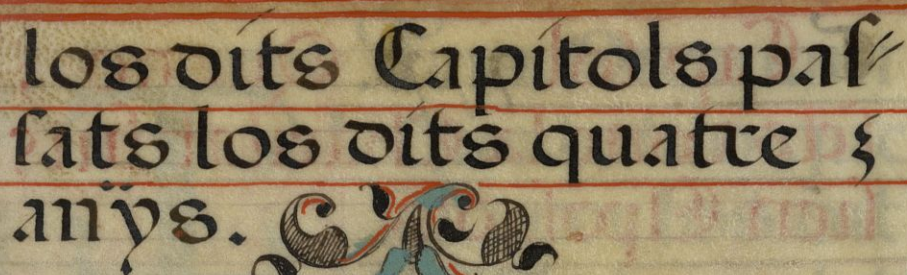 los dits Capitols paſ⸗
ſats los dits quatre
anÿs.